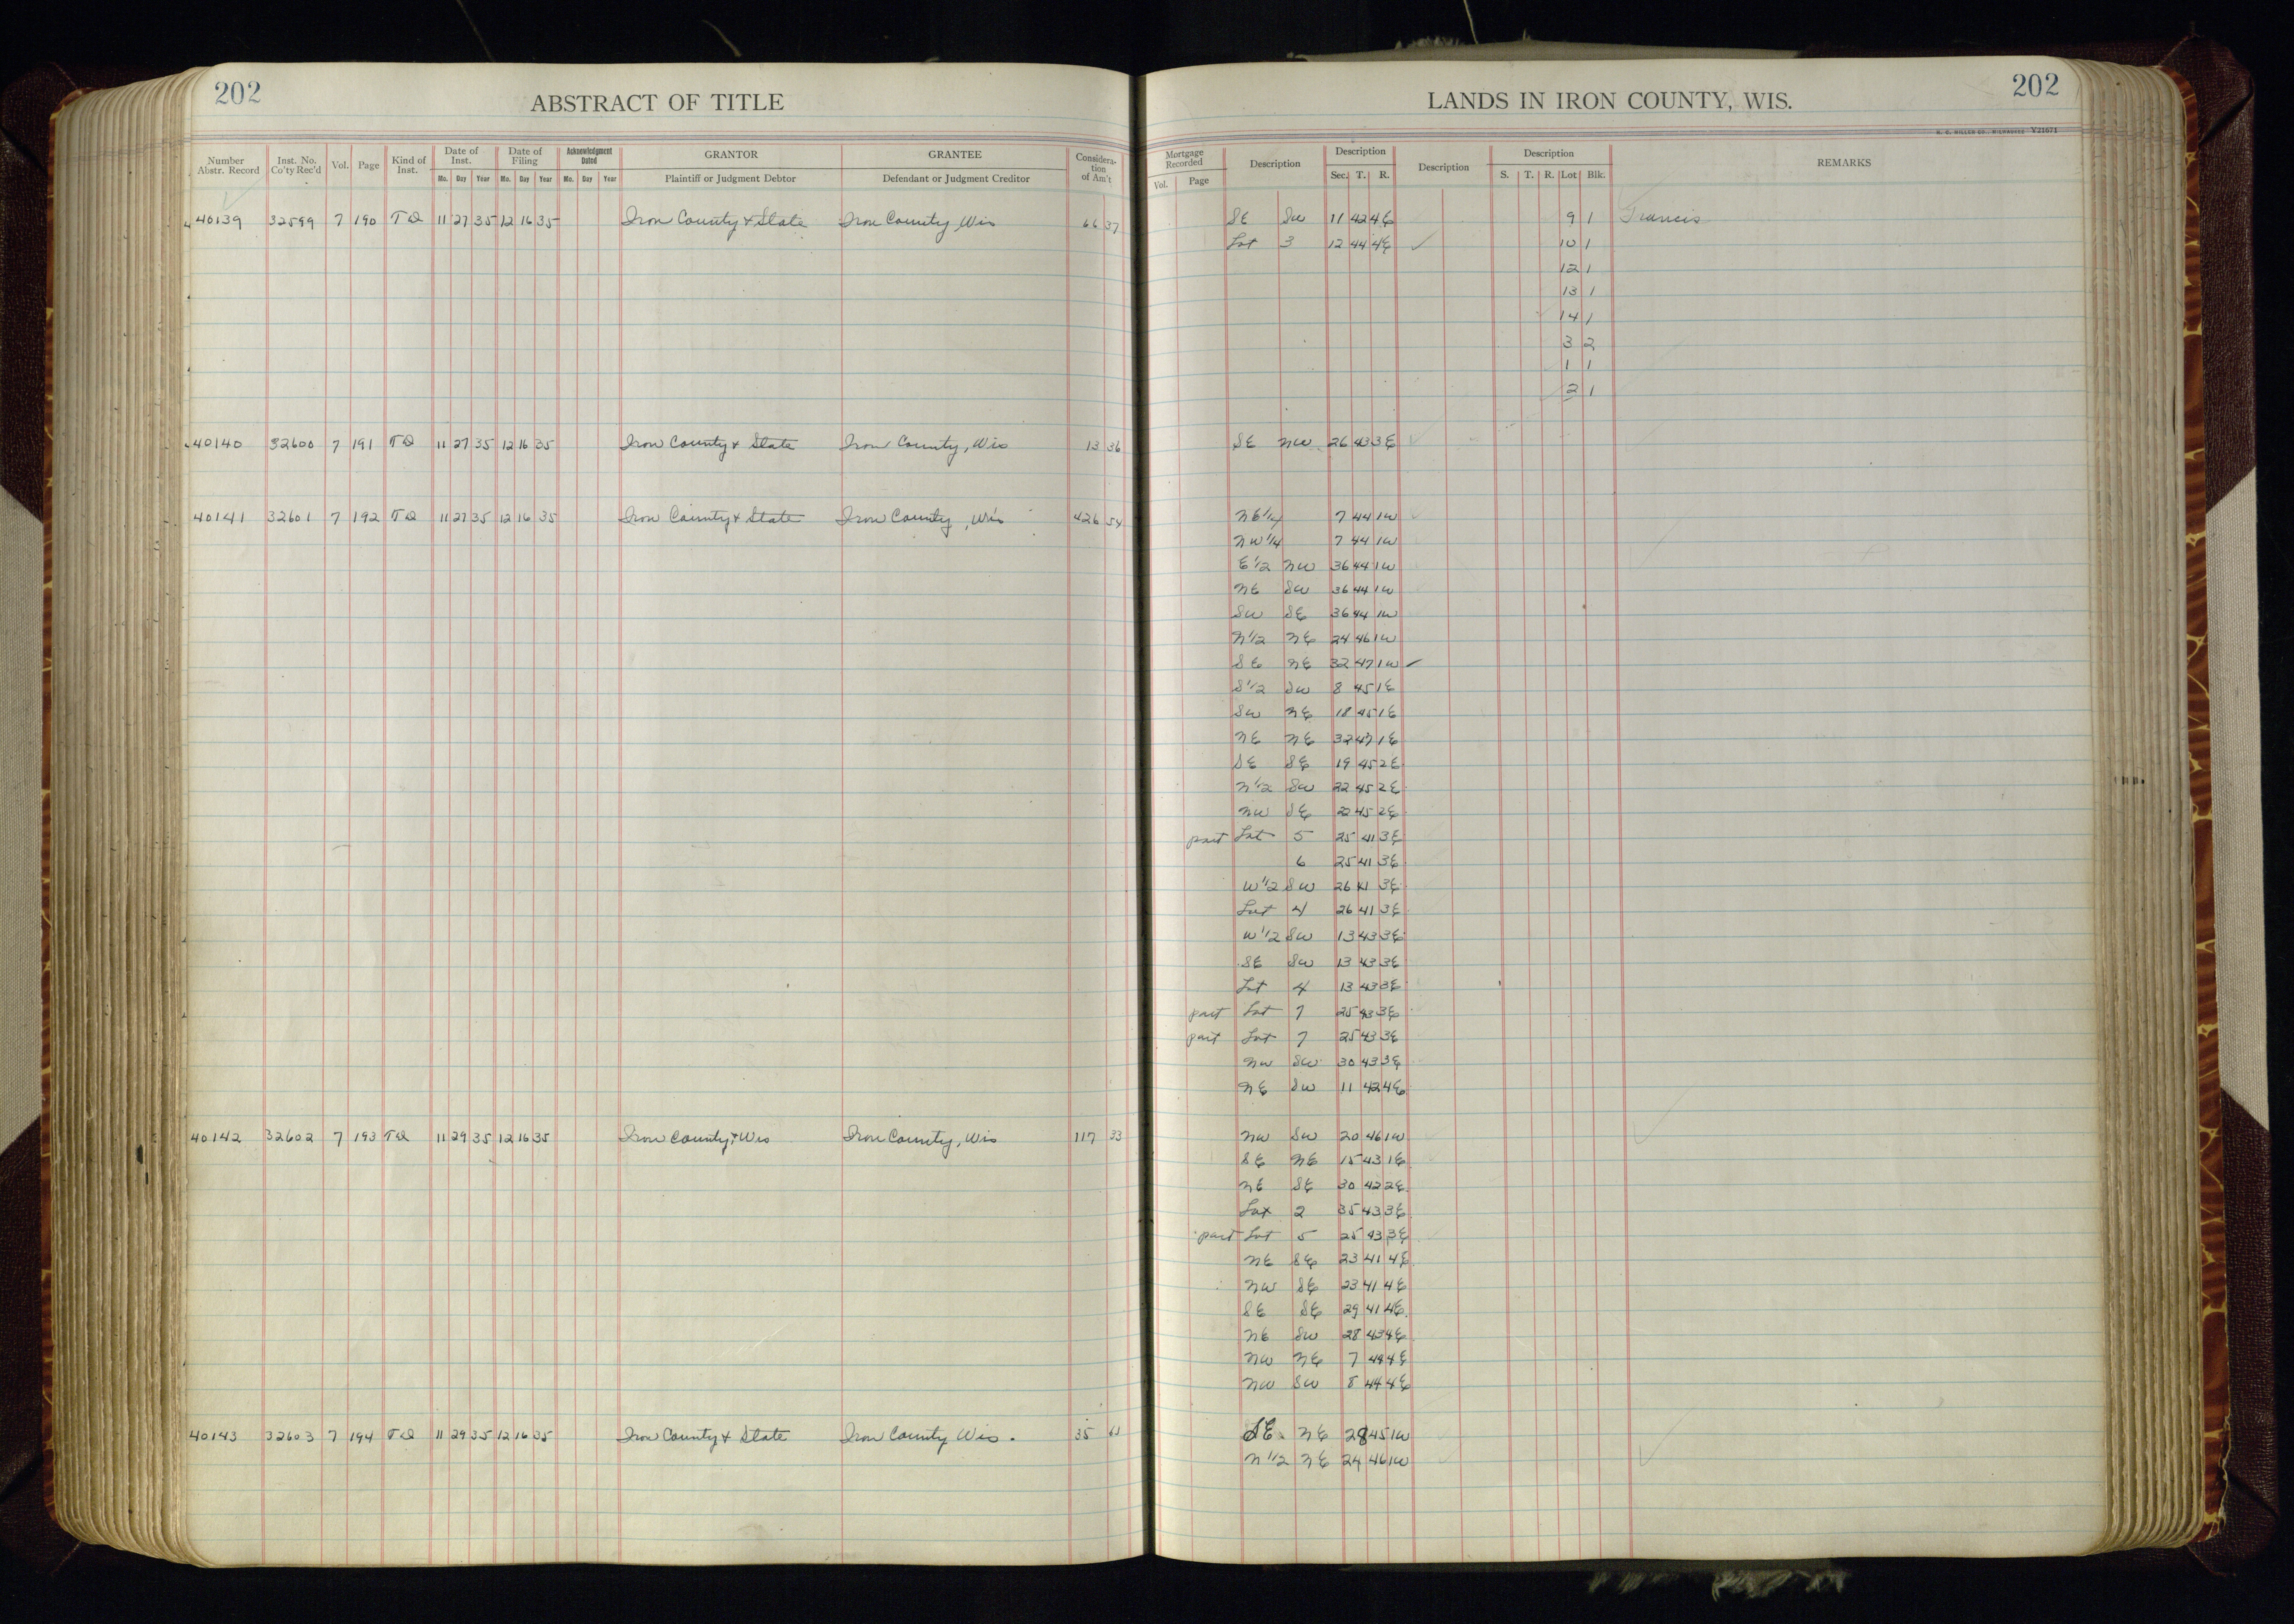 202
ABSTRACT OF TITLE
Number Abstr. Record Inst. No. Co'ty Rec'd Vol. Page Kind of Inst. Date of Inst. Mo. Day Year Date of Filing Mo. Day Year Acknowledgment Dated Mo. Day Year GRANTOR Plaintiff or Judgment Debtor GRANTEE Defendant or Judgment Creditor Considera-tion of Am't
40139 32599 7 190 TD 11 27 35 12 16 35 Iron County & State Iron County Wis 66 37
40140 32600 7 191 TD 11 27 35 12 16 35 Iron County & State Iron County, Wis 13 36
40141 32601 7 192 TD 11 27 35 12 16 35 Iron County & State Iron County, Wis 426 54
40142 32602 7 193 TD 11 29 35 12 16 35 Iron County & Wis Iron County, Wis 117 33
40143 32603 7 194 TD 11 29 35 12 16 35 Iron County & State Iron County Wis. 35
LANDS IN IRON COUNTY, WIS.
202
H. C. MILLER CO., MILWAUKEE Y21671
Mortgage Recorded Vol. Page Description Description Sec. T. R. Description Description S. T. R. Lot Blk. REMARKS
SE SW 11 42 4E 9 1 Francis
Lot 3 12 44 4E ✓ 10 1
12 1
13 1
14 1
3 2
1 1
2 1
SE NW 26 43 3E
NE1/4 7 44 1W
NW1/4 7 44 1W
E1/2 NW 36 44 1W
NE SW 36 44 1W
SW SE 36 44 1W
N1/2 NE 24 46 1W
SE NE 32 47 1W ✓
S1/2 SW 8 45 1E
SW NE 18 45 1E
NE NE 32 47 1E
SE SE 19 45 2E
N1/2 SW 22 45 2E
NW SE 22 45 2E
part Lot 5 25 41 3E
6 25 41 3E
W1/2 SW 26 41 3E
Lot 4 26 41 3E
W1/2 SW 13 43 3E
SE SW 13 43 3E
Lot 4 13 43 3E
part Lot 7 25 43 3E
part Lot 7 25 43 3E
NW SW 30 43 3E
NE SW 11 42 4E
NW SW 20 46 1W
SE NE 15 43 1E
NE SE 30 42 2E
Lot 2 35 43 3E
part Lot 5 25 43 3E
NE SE 23 41 4E
NW SE 23 41 4E
SE SE 29 41 4E
NE SW 28 43 4E
NW NE 7 44 4E
NW SW 8 44 4E
SE NE 28 45 1W
N1/2 NE 24 46 1W